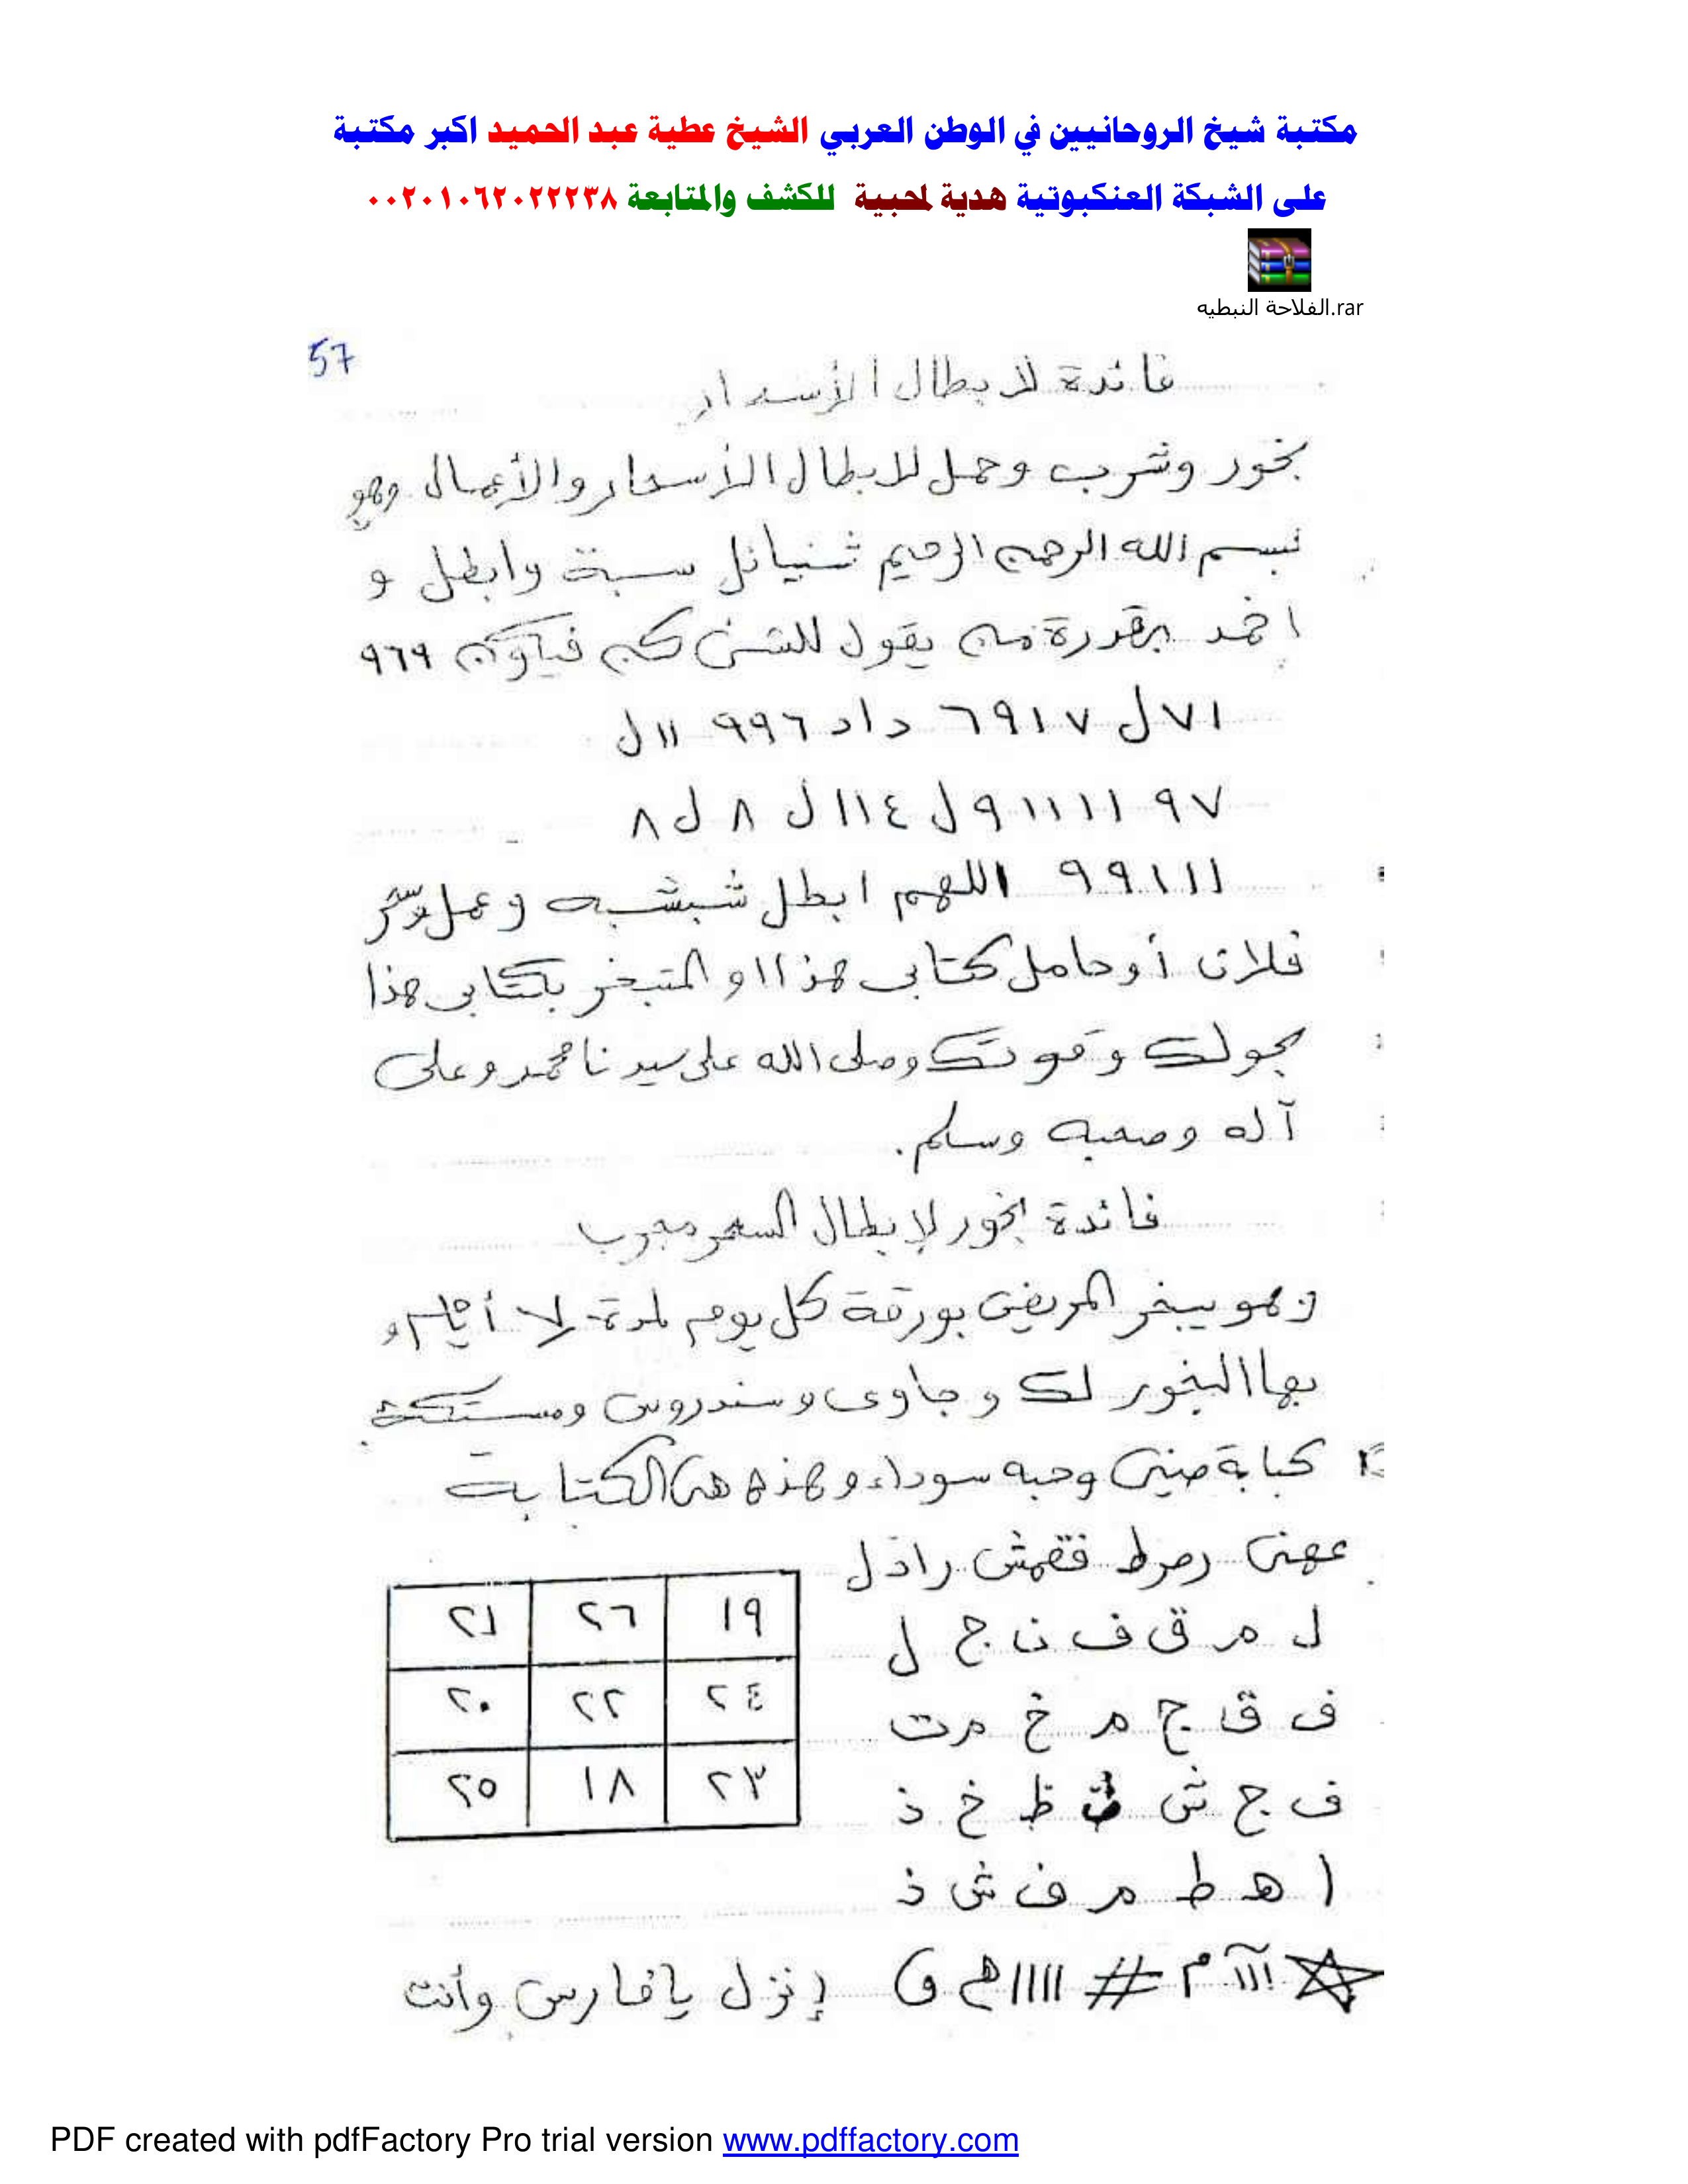 مكتبة شيخ الروحانيين في الوطن العربي الشيخ عطية عبد الحميد اكبر مكتبة
على الشبكة العنكبوتية هدية لمحبية للكشف والمتابعة ٠٠٢٠١٠٦٢٠٢٢٢٣٨
الفلاحة النبطيه.rar
57
فائدة لابطال الأسحار
بخور وشرب وحمل للابطال الأسحار والأعمال وهو
بسم الله الرحمن الرحيم شنيائل سبة وابطل و
اخمد بقدرة من يقول للشئ كن فياكون ٩٦٩
٧١ل ٦٩١٧ داد ٩٩٦ ١١ل
٩٧ ٩١١١١ل ١١٤ل ٨ل٨
٩٩١١١ اللهم ابطل شبشبه وعمل وسحر
فلان أو حامل كتابى هذا او المتبخر بكتابى هذا
بحولك وقوتك وصلى الله على سيدنا محمد وعلى
آله وصحبه وسلم.
فائدة بخور لإبطال السحر مجرب
وهو يبخر المريض بورقة كل يوم لمدة ٧ أيام و
بها البخور لك وجاوى وسندروس ومستكة
كبابة صينى وحبه سوداء وهذه هى الكتابة
عهنى رصرط فقمش راذل
ل م ق ف ن ج ل
ف ق ج م خ م ت
ف ج ش ث ظ خ ذ
ا ه ط م ف ش ذ
١٩ ٢٦ ٢١
٢٤ ٢٢ ٢٠
٢٣ ١٨ ٢٥
م # ١١١١ ه و إنزل يا فارس وأنت
PDF created with pdfFactory Pro trial version www.pdffactory.com